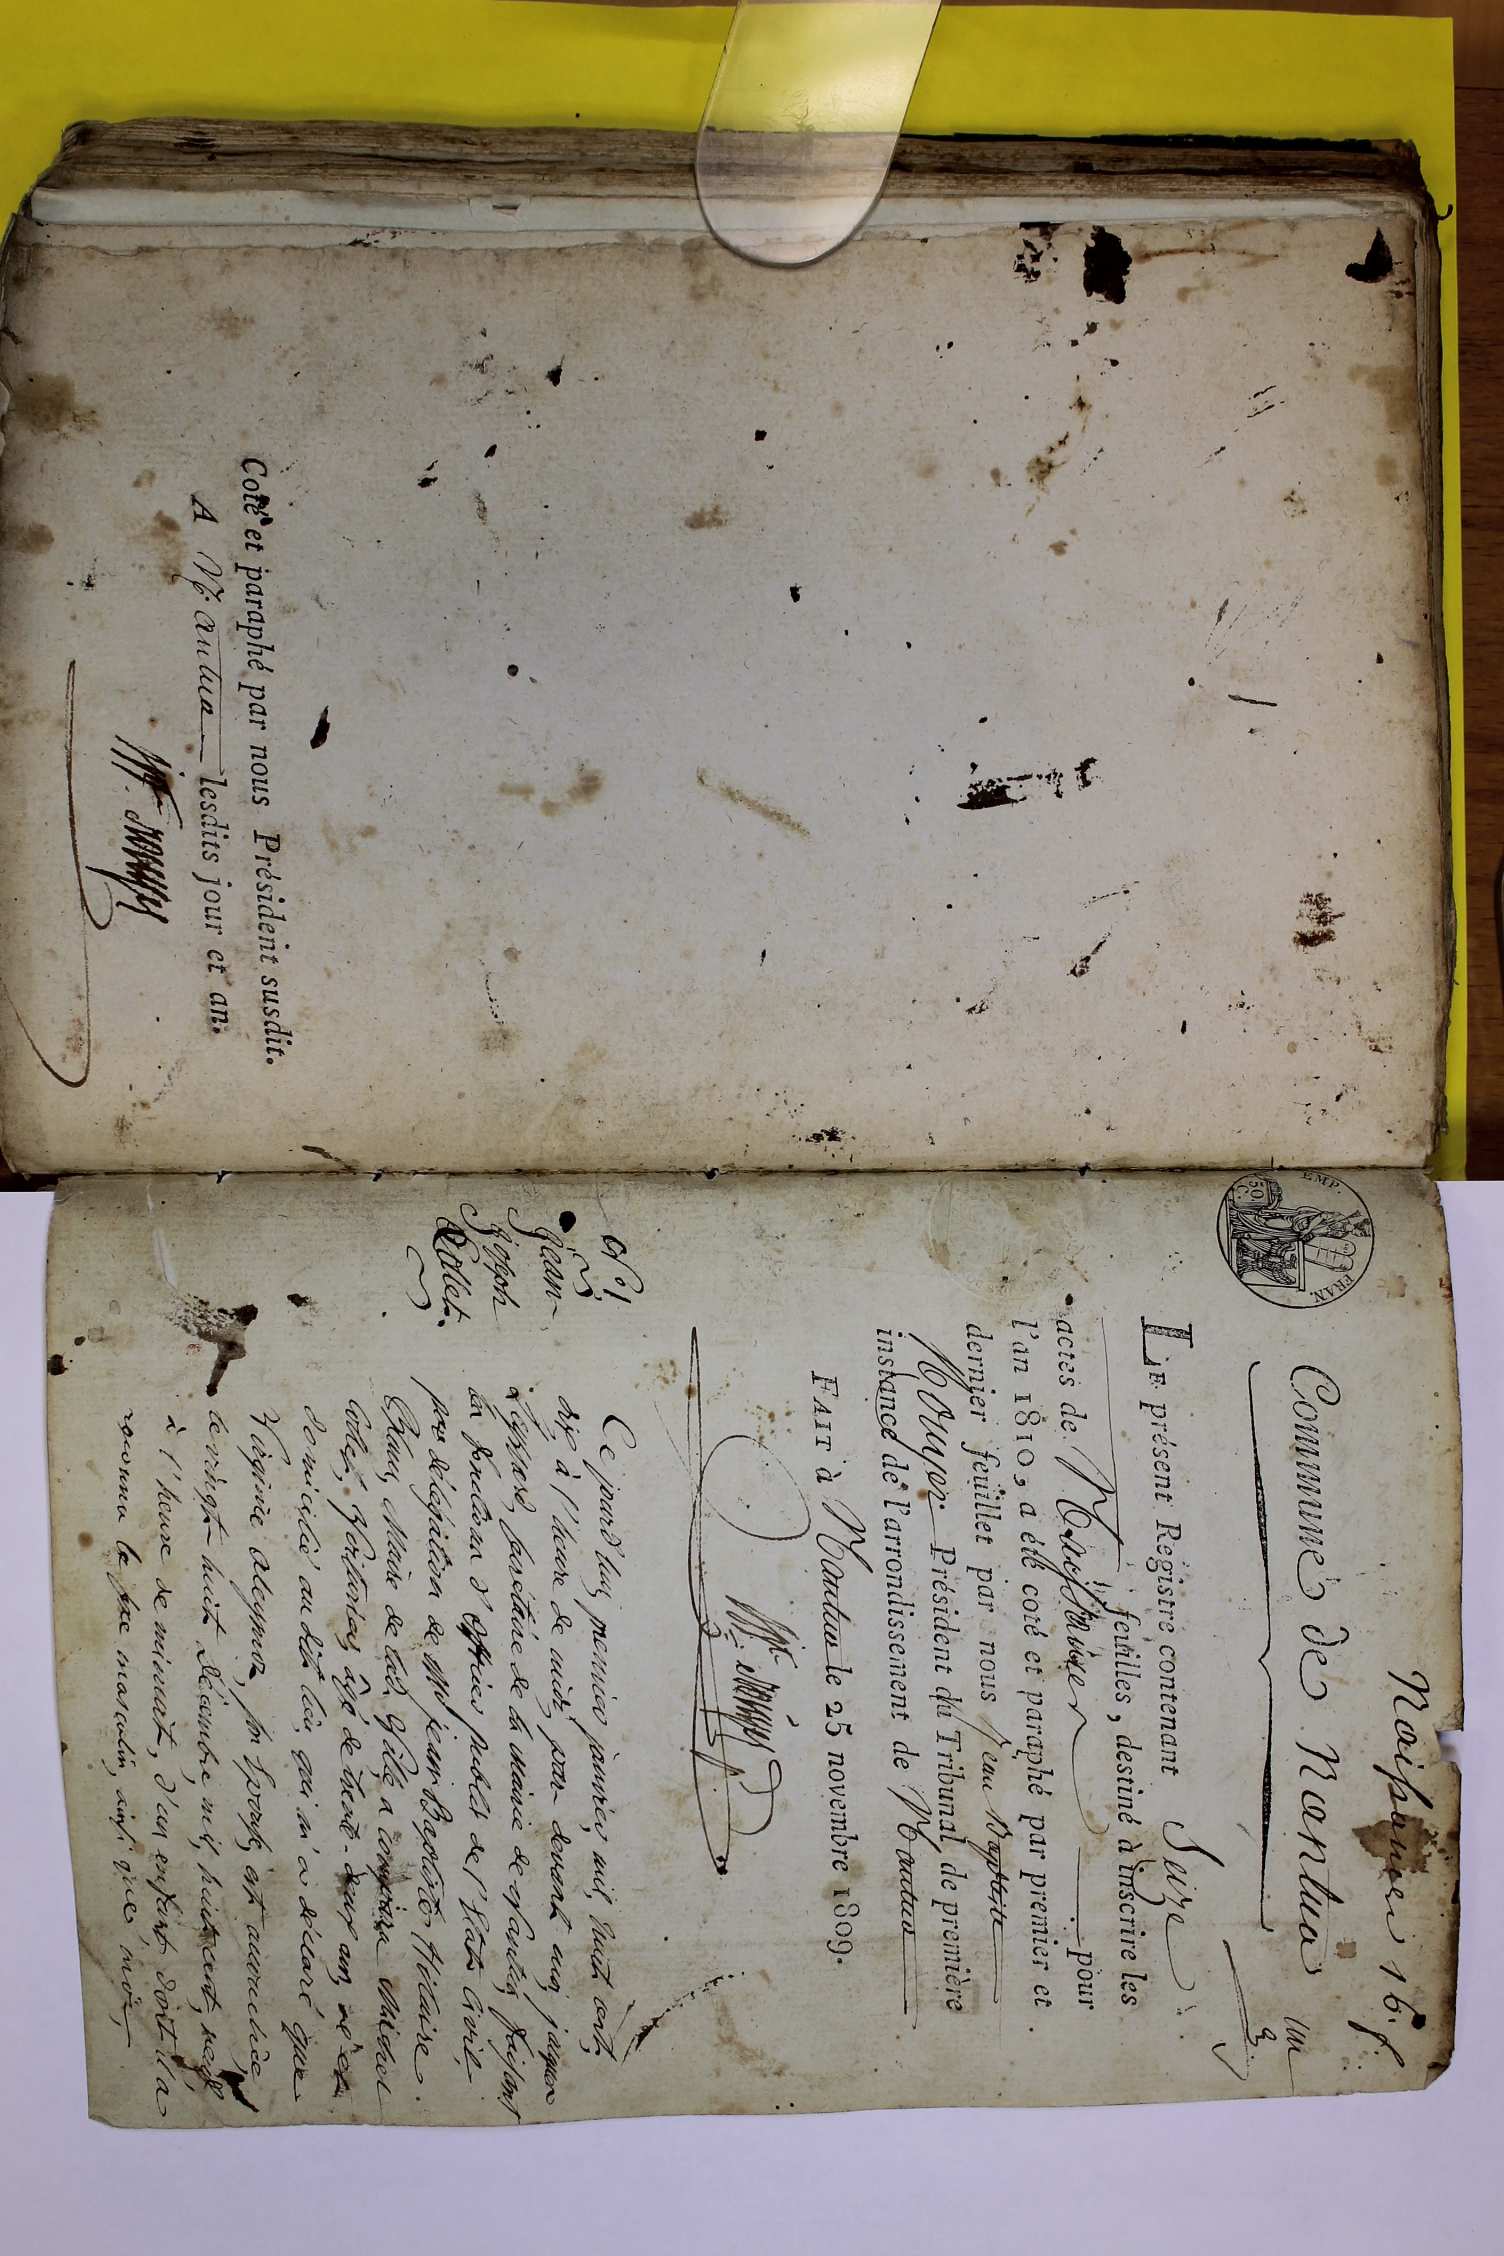 Coté et paraphé par nous Président susdit.
A Nantua lesdits jour et an.
Naissances 16. f.
un
EMP. FRAN.
50 C.
Commune de Nantua
LE présent Registre contenant Seize
feuilles, destiné à inscrire les
actes de Naissances pour
l'an 1810, a été coté et paraphé par premier et
dernier feuillet par nous Jean Baptiste
Rouyer Président du Tribunal de première
instance de l'arrondissement de Nantua
FAIT à Nantua le 25 novembre 1809.
N.° 1
Jean
Joseph
Collet.
Ce jourd'hui premier janvier mil huit cent
dix à l'heure de midi par devant moi jacques
secrétaire de la mairie de Nantua, faisant
les fonctions d'officier public de l'état civil
par délégation de Mr jean Baptiste Hilaire
Maire de lad. Ville, a comparu Michel
Collet, âgé de trente-deux ans, né et
domicilié au dit lieu, qui m'a déclaré que
Virginie son épouse, est accouchée
le vingt huit décembre, mil huit cent neuf
à l'heure de minuit, d'un enfant dont il a
reconnu le sexe masculin, ainsi que moi,